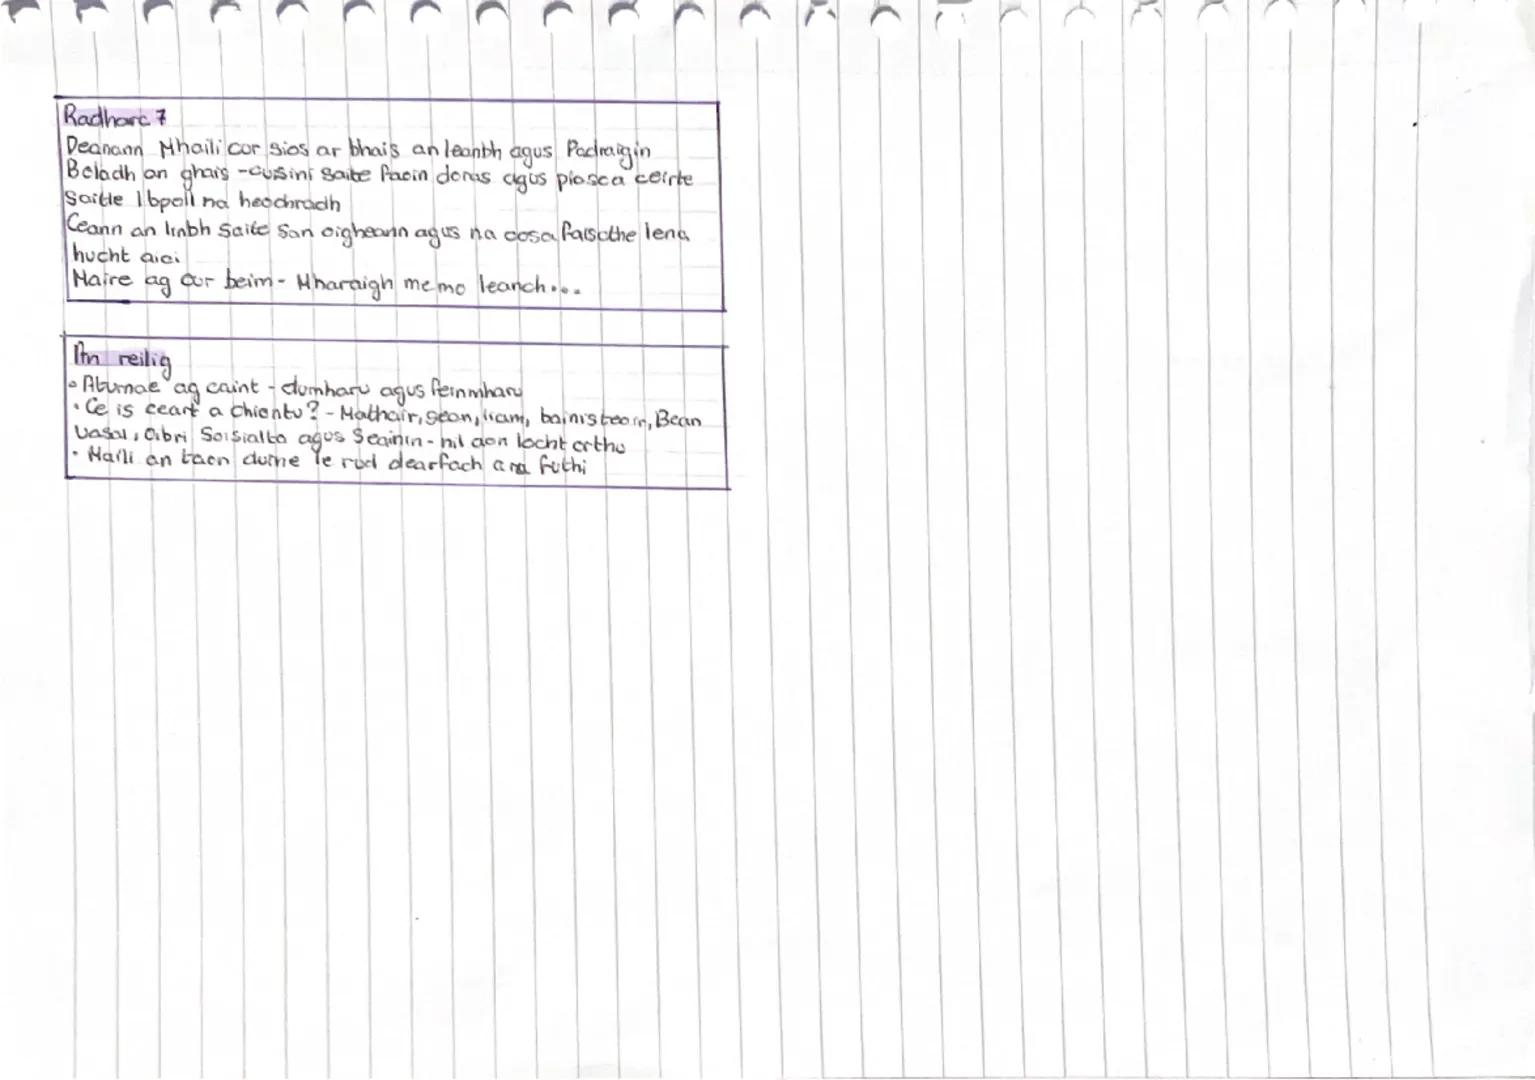 Radharc 7
Deanann Mhaili cur sios ar bhais an leanbh agus Padraigin
Boladh an ghais - cuisini saite faoin doras agus piosca ceirte
Saitte I bpoll na heochradh
Ceann an linbh Saite San oigheann agus na cosa faiscthe lena
hucht aici
Maire ag cur beim - Mharaigh me mo leanch...
An reilig
• Aturnae ag caint - dumharu agus feinmharu
• Ce is ceart a chiontu? - Mathair, sean, liam, bainisteoir, Bean
Uasal, Oibri Soisialta agus Seainin - nil aon locht orthu
• Maili an taon duine le rud dearfach a ra futhi